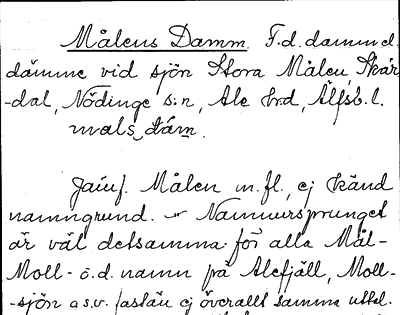 Målens Damm. F.d. damm el.
dämme vid sjön Stora Målen, Skår-
-dal, Nödinge s:n, Ale hrd, Älfsb. l.
mals dám.
Jämf. Målen m.fl., ej känd
namngrund. - Namnursprunget
är väl detsamma för alla Mål-
Moll- o.d. namn på Alefjäll, Moll-
-sjön a.s.v. fastän ej överallt samma uttal.